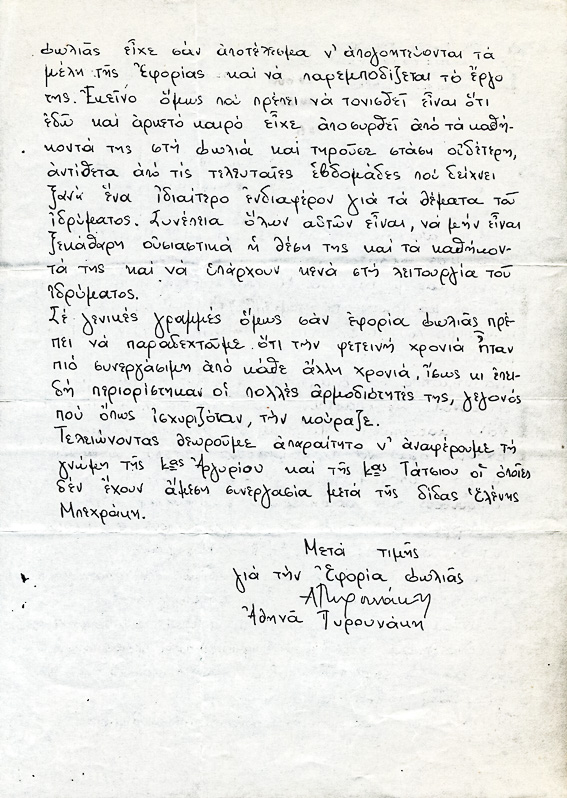 φωλιᾶς εἶχε σάν ἀποτέλεσμα ν' ἀπογοητεύονται τά
μέλη τῆς Ἐφορίας καί νά παρεμποδίζεται τό ἔργο
της. Ἐκεῖνο ὅμως πού πρέπει νά τονισθεῖ εἶναι ὅτι
ἐδῶ καί ἀρκετό καιρό εἶχε ἀποσυρθεῖ ἀπό τά καθή-
κοντά της στή φωλιά καί τηροῦσε στάση οὐδέτερη,
ἀντίθετα ἀπό τίς τελευταῖες ἑβδομάδες πού δείχνει
ξανά ἕνα ἰδιαίτερο ἐνδιαφέρον γιά τά θέματα τοῦ
ἱδρύματος. Συνέπεια ὅλων αὐτῶν εἶναι, νά μήν εἶναι
ξεκάθαρη οὐσιαστικά ἡ θέση της καί τά καθήκον-
τά της καί νά ὑπάρχουν κενά στή λειτουργία τοῦ
ἱδρύματος.
Σέ γενικές γραμμές ὅμως σάν ἐφορία φωλιᾶς πρέ-
πει νά παραδεχτοῦμε ὅτι τήν φετεινή χρονιά ἦταν
πιό συνεργάσιμη ἀπό κάθε ἄλλη χρονιά, ἴσως κι ἐπει-
δή περιορίστηκαν οἱ πολλές ἁρμοδιότητές της, γεγονός
πού ὅπως ἰσχυριζόταν, τήν κούραζε.
Τελειώνοντας θεωροῦμε ἀπαραίτητο ν' ἀναφέρουμε τή
γνώμη τῆς κας Ἀργυρίου καί τῆς κας Τάτσιου οἱ ὁποῖες
δέν ἔχουν ἄμεση συνεργασία μετά τῆς δίδας Ἑλένης
Μπεχράκη.
Μετά τιμῆς
γιά τήν Ἐφορία φωλιᾶς
Ἀθηνᾶ Γυρουνάκη